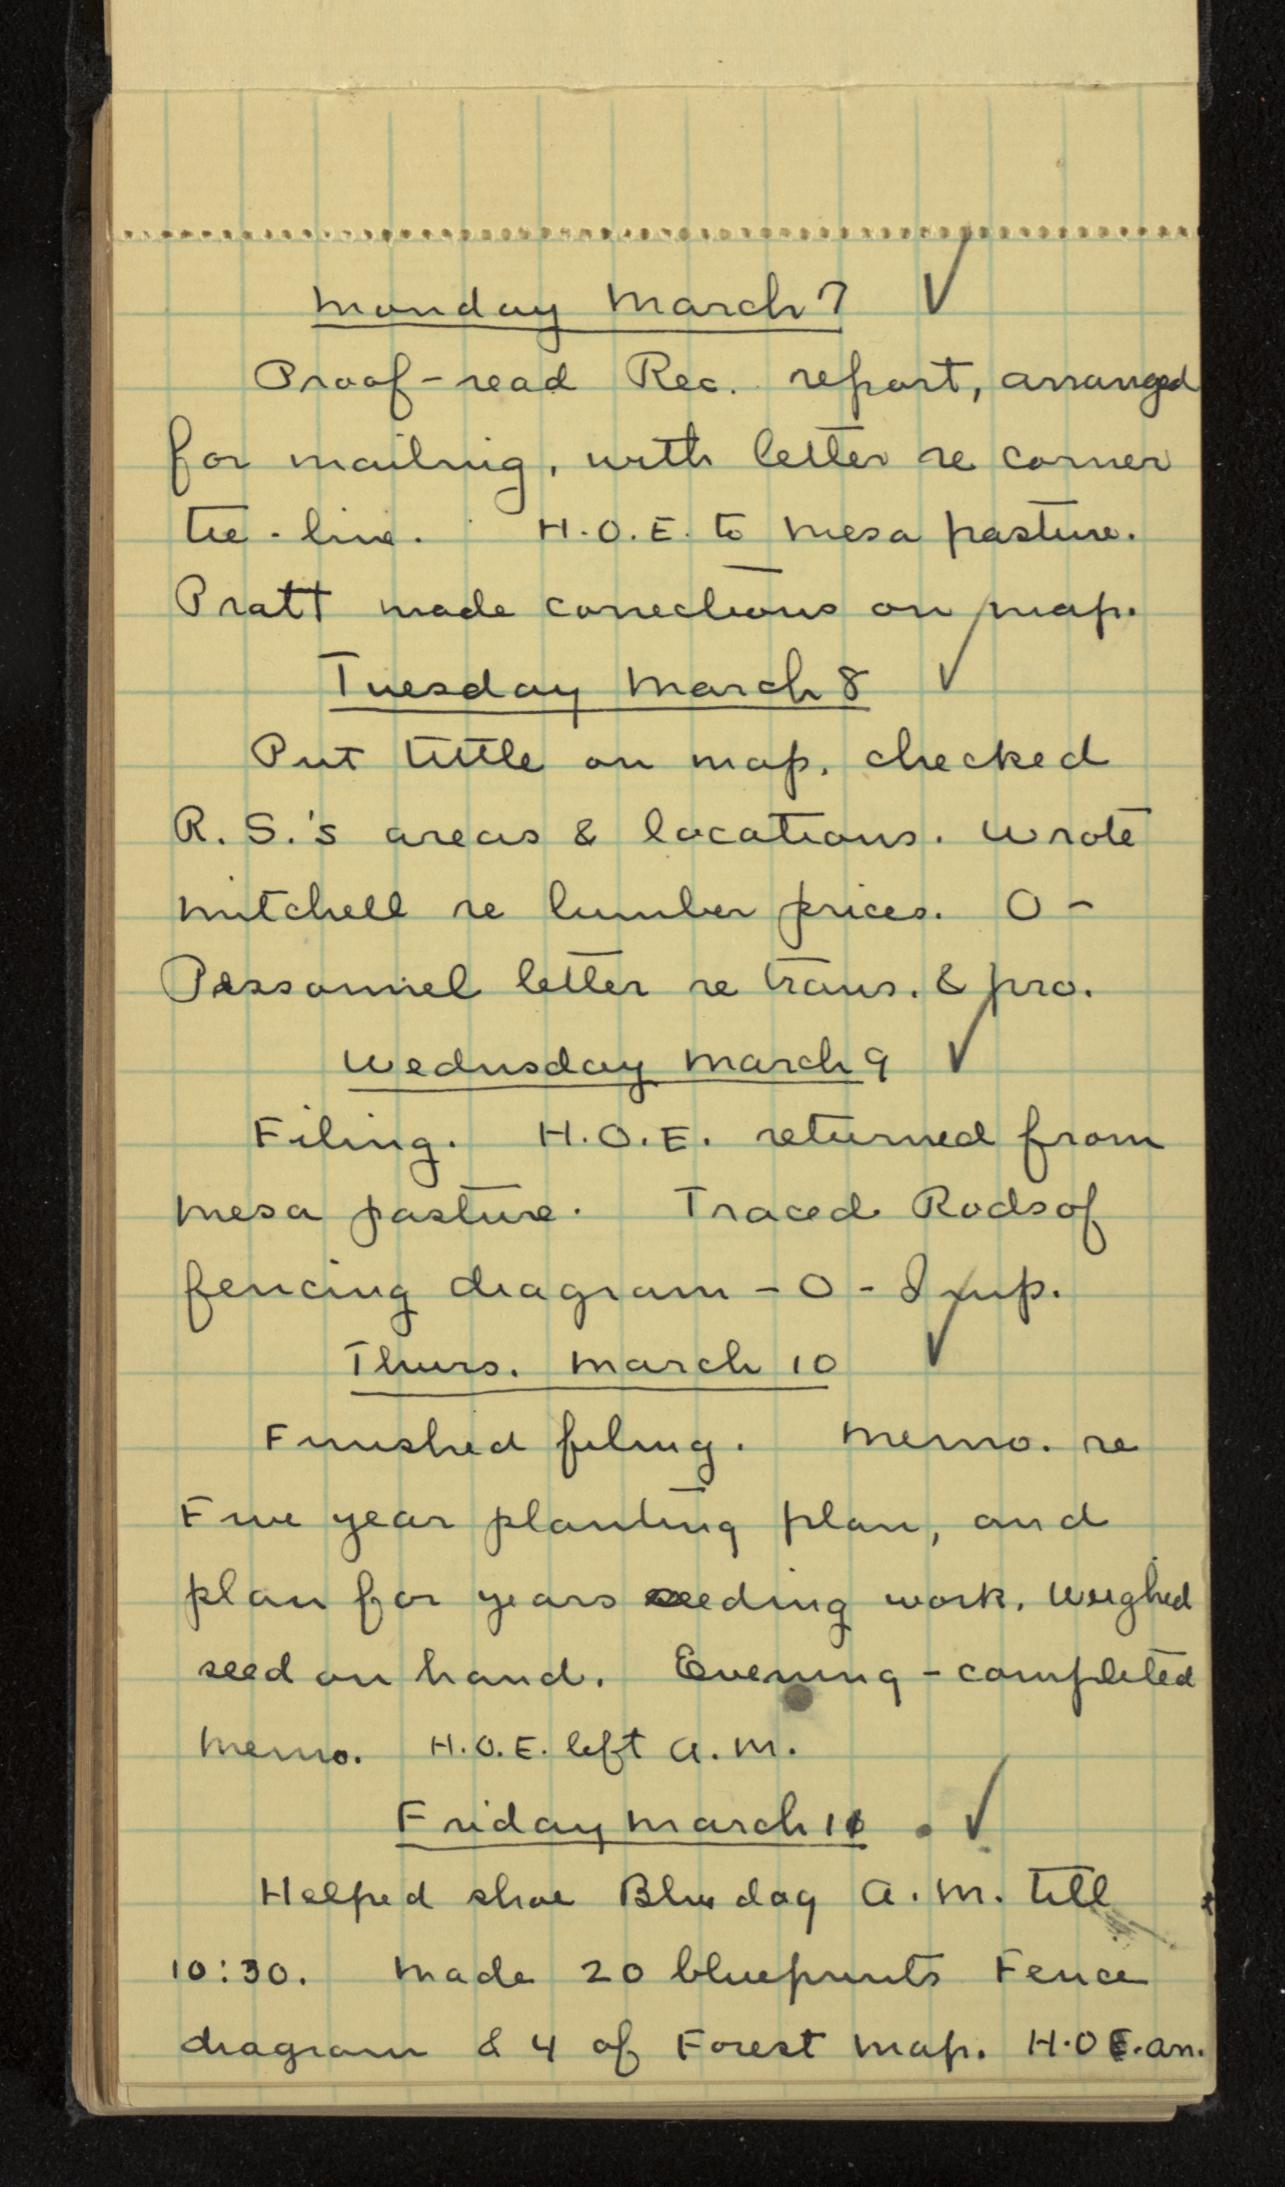 Monday March 7 ✓
Proof-read Rec. report, arranged
for mailing, with letter re corner
tie-line. H.O.E. to Mesa pasture.
Pratt made corrections on map.
Tuesday March 8 ✓
Put tittle on map, checked
R.S.'s areas & locations. Wrote
Mitchell re lumber prices. O -
Personnel letter re trans. & pro.
Wednsday March 9 ✓
Filing. H.O.E. returned from
Mesa pasture. Traced Rodsof
fencing diagram - O - Imp.
Thurs. March 10 ✓
Finished filing. Memo. re
Five year planting plan, and
plan for years seeding work. Weighed
seed on hand. Evening - completed
memo. H.O.E. left A.M.
Friday March 11 ✓
Helped shoe Blue dag A.M. till
10:30. Made 20 blueprints Fence
diagram & 4 of Forest Map. H.O.E. an.